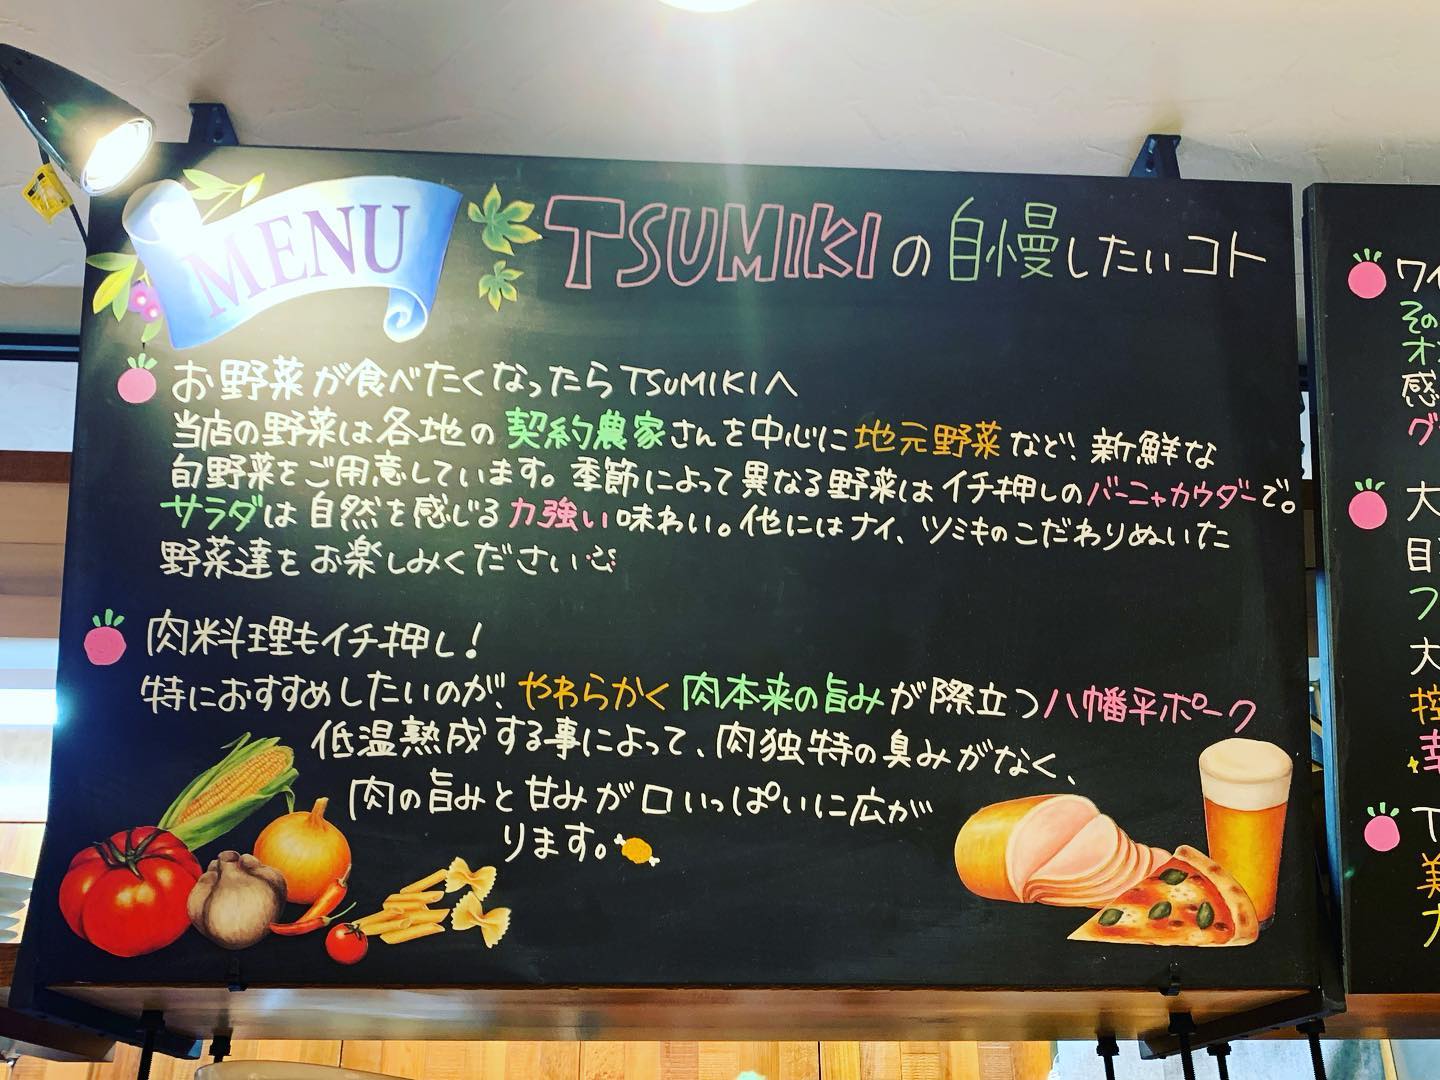 MENU
TSUMIKIの自慢したいコト
お野菜が食べたくなったらTSUMIKIへ
当店の野菜は各地の契約農家さんを中心に地元野菜など、新鮮な
旬野菜をご用意しています。季節によって異なる野菜はイチ押しのバーニャカウダーで。
サラダは自然を感じる力強い味わい。他にはナイ、ツミキのこだわりぬいた
野菜達をお楽しみください
肉料理もイチ押し!
特におすすめしたいのが、やわらかく肉本来の旨みが際立つ八幡平ポーク
低温熟成する事によって、肉独特の臭みがなく、
肉の旨みと甘みが口いっぱいに広が
ります。
ワイ
その
オ
感
グ
大
目
フ
大
控
幸
T
美